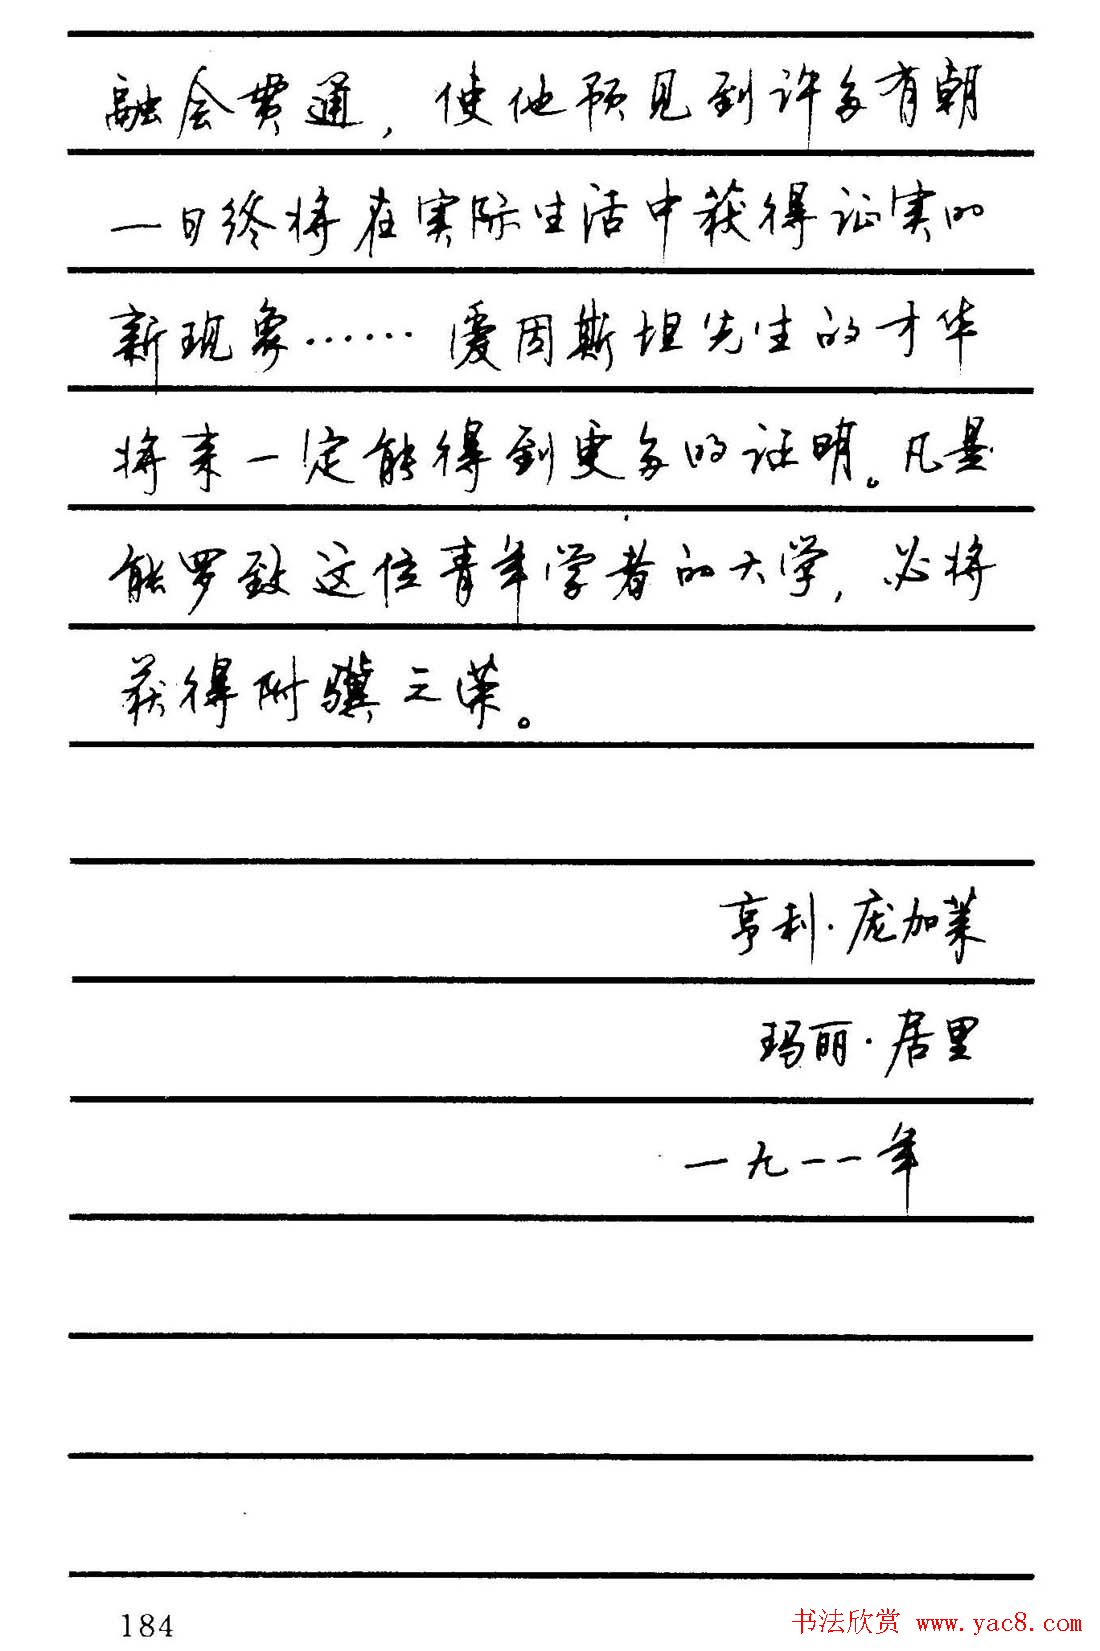 融会贯通，使他预见到许多有朝
一日终将在实际生活中获得证实的
新现象……爱因斯坦先生的才华
将来一定能得到更多的证明。凡是
能罗致这位青年学者的大学，必将
获得附骥之荣。
亨利·庞加莱
玛丽·居里
一九一一年
184
书法欣赏 www.yac8.com